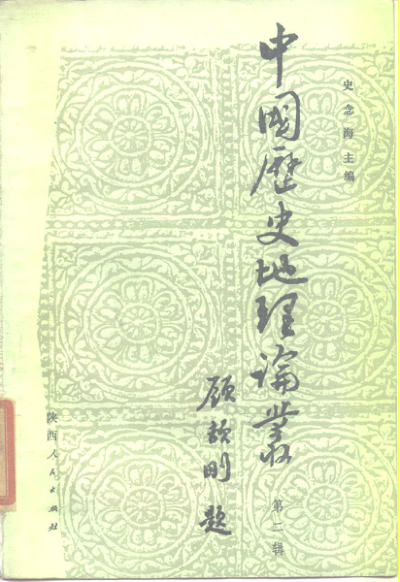 史念海主编
中國歷史地理論叢
第二辑
顧頡剛題
陕西人民出版社